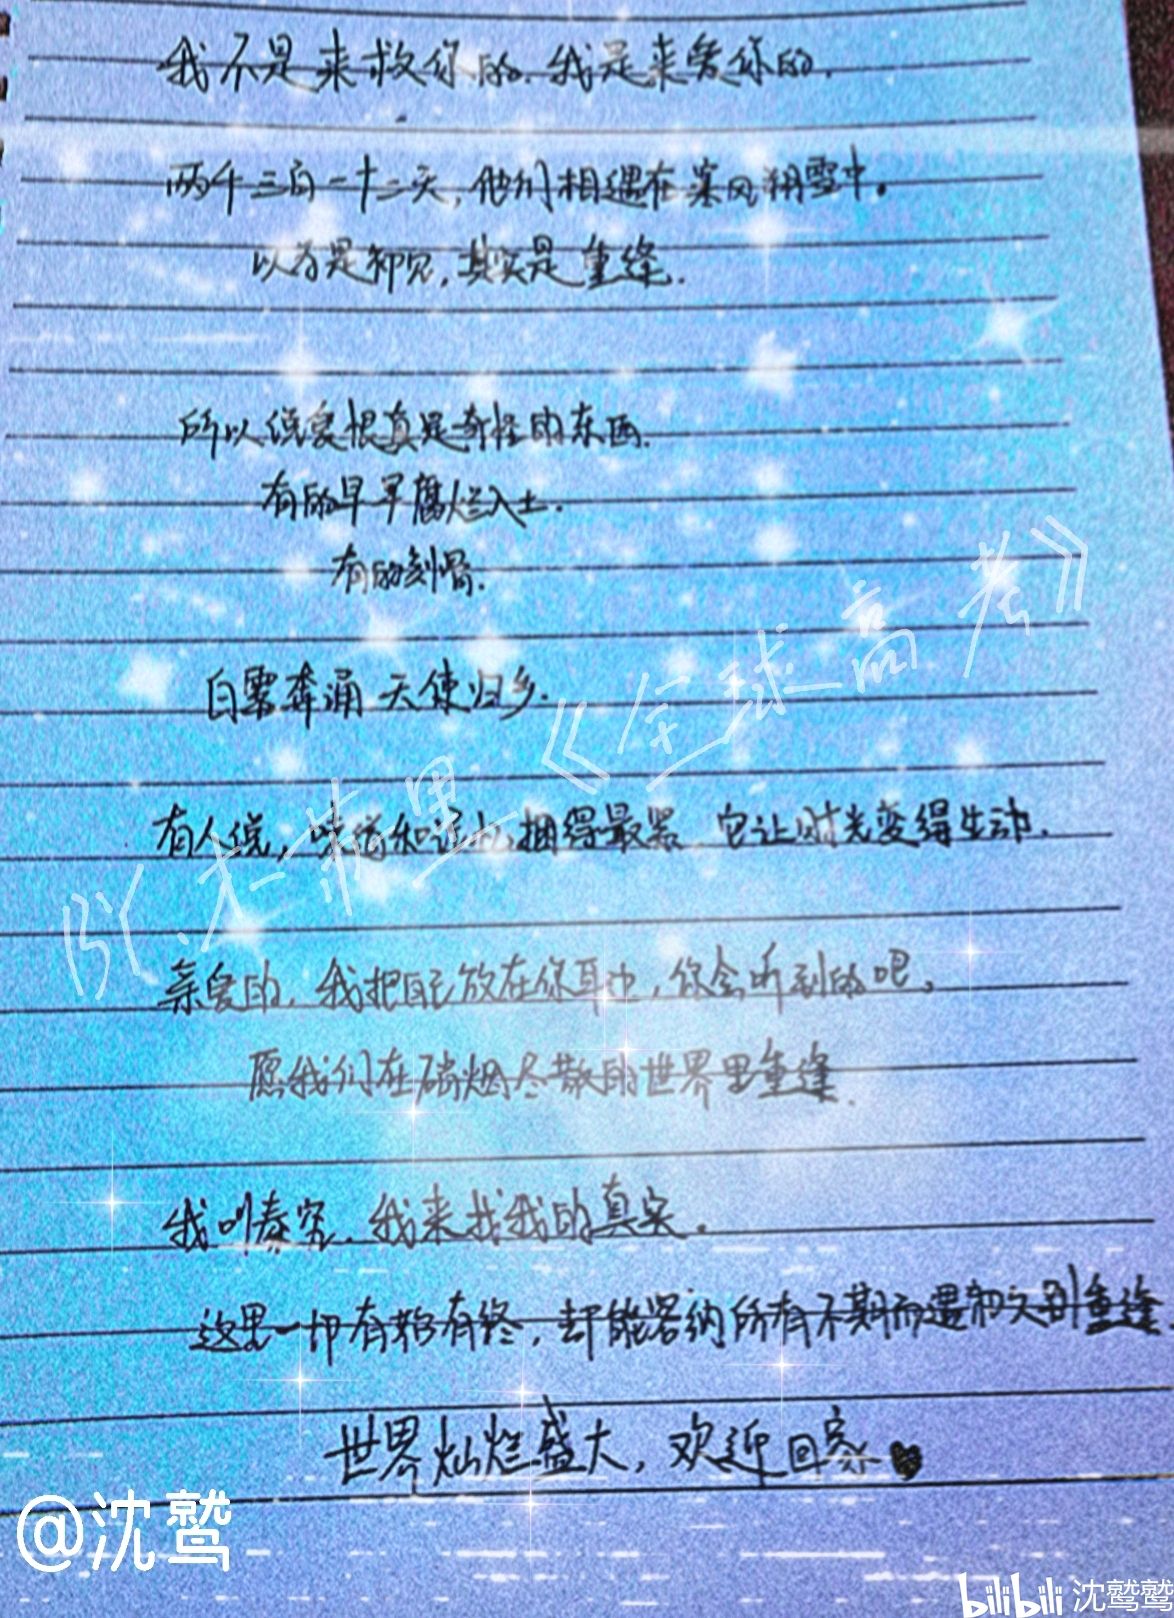 我不是来救你的.我是来爱你的.
两千三百一十二天,他们相遇在寒风朔雪中。
以为是初见,其实是重逢.
所以说爱恨真是奇怪的东西.
有的早早腐烂入土.
有的刻骨.
白雾奔涌 天使归乡.
《全球高考》
木苏里
有人说,味道和记忆捆得最紧,它让时光变得生动.
亲爱的,我把自己放在你耳中,你会听到的吧,
愿我们在硝烟尽散的世界里重逢.
我叫秦究.我来找我的真实。
这里一切有始有终,却能容纳所有不期而遇和久别重逢
世界灿烂盛大,欢迎回家
@沈鹫
bilibili 沈鹫鹫